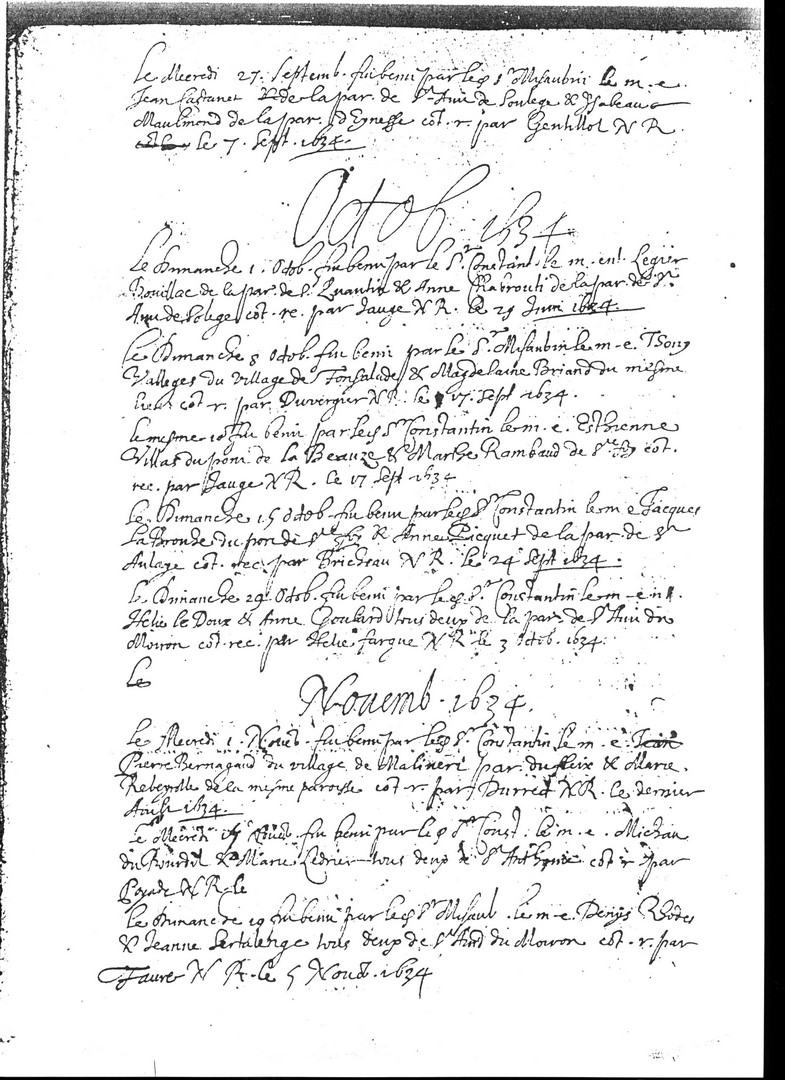 Le Mecredi 27. Septemb. fut beni par led Sr Misaubin le m. e.
Jean Castanet de la par. de St Avi de Soulege & Ysabeau
Maulmond de la par. d'Eynesse cot. r. par Gentillot N R.
le 7. Sept. 1634.
Octob. 1634
Le Dimanche 1. Octob. fut beni par le Sr Constant. le m. ent. Legier
Rouillac de la par. de St Quantin & Anne Chabrouti de la par. de St
Avi de Solege cot. re. par Jauge N R. le 25 Juin 1634.
Le Dimanche 8 Octob. fut beni par le Sr Misaubin le m. e. Tsony
Valleges du village de Fonsalade & Magdelaine Briand du mesme
lieu cot r. par Duvergier N R. le 17. Sept 1634.
le mesme fut beni par led Sr Constantin le m. e. Esthienne
Villas du pont de la Beauze & Marthe Rambaud de Ste foy cot.
rec. par Jauge N R. le 17 Sept 1634
Le Dimanche 15 Octob. fut beni par led Sr Constantin le m e Jacques
La Bronde du port de Ste foy & Anne Picquet de la par. de St
Aulaye cot. rec. par Bricheau N R. le 24 Sept 1634.
Le Dimanche 29 Octob. fut beni par led. Sr Constantin le m. en.
Helie le Doux & Anne Goulard tous deux de la par. de St Avi du
Moiron cot. rec. par Helie fargue N R le 3 Octob. 1634.
Le
Novemb. 1634.
Le Mecredi 1. Novb. fut beni par led Sr Constantin le m. e. Jean
Pierre Bernagaud du village de Malineri par. du fleix & Marie
Rebeyrolle de la mesme paroisse cot r. par Durret N R. le dernier
Aoust 1634.
Le Mecredi 15 Novb. fut beni par le Sr Const. le m. e. Michau
du Bourdil & Marie Ledrier tous deux de St Anthoine cot r par
Poyade N R le
Le Dimanche 19 fut beni par led Sr Misaub. le m. e. Denys Rodes
& Jeanne Sertalenge tous deux de St Avid du Moiron cot. r. par
Faure N R. le 5 Novb. 1634